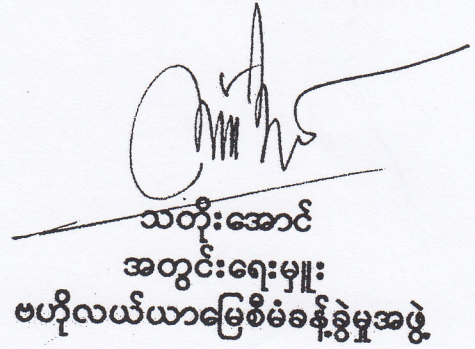 သတိုးအောင်
အတွင်းရေးမှူး
ဗဟိုလယ်ယာမြေစီမံခန့်ခွဲမှုအဖွဲ့